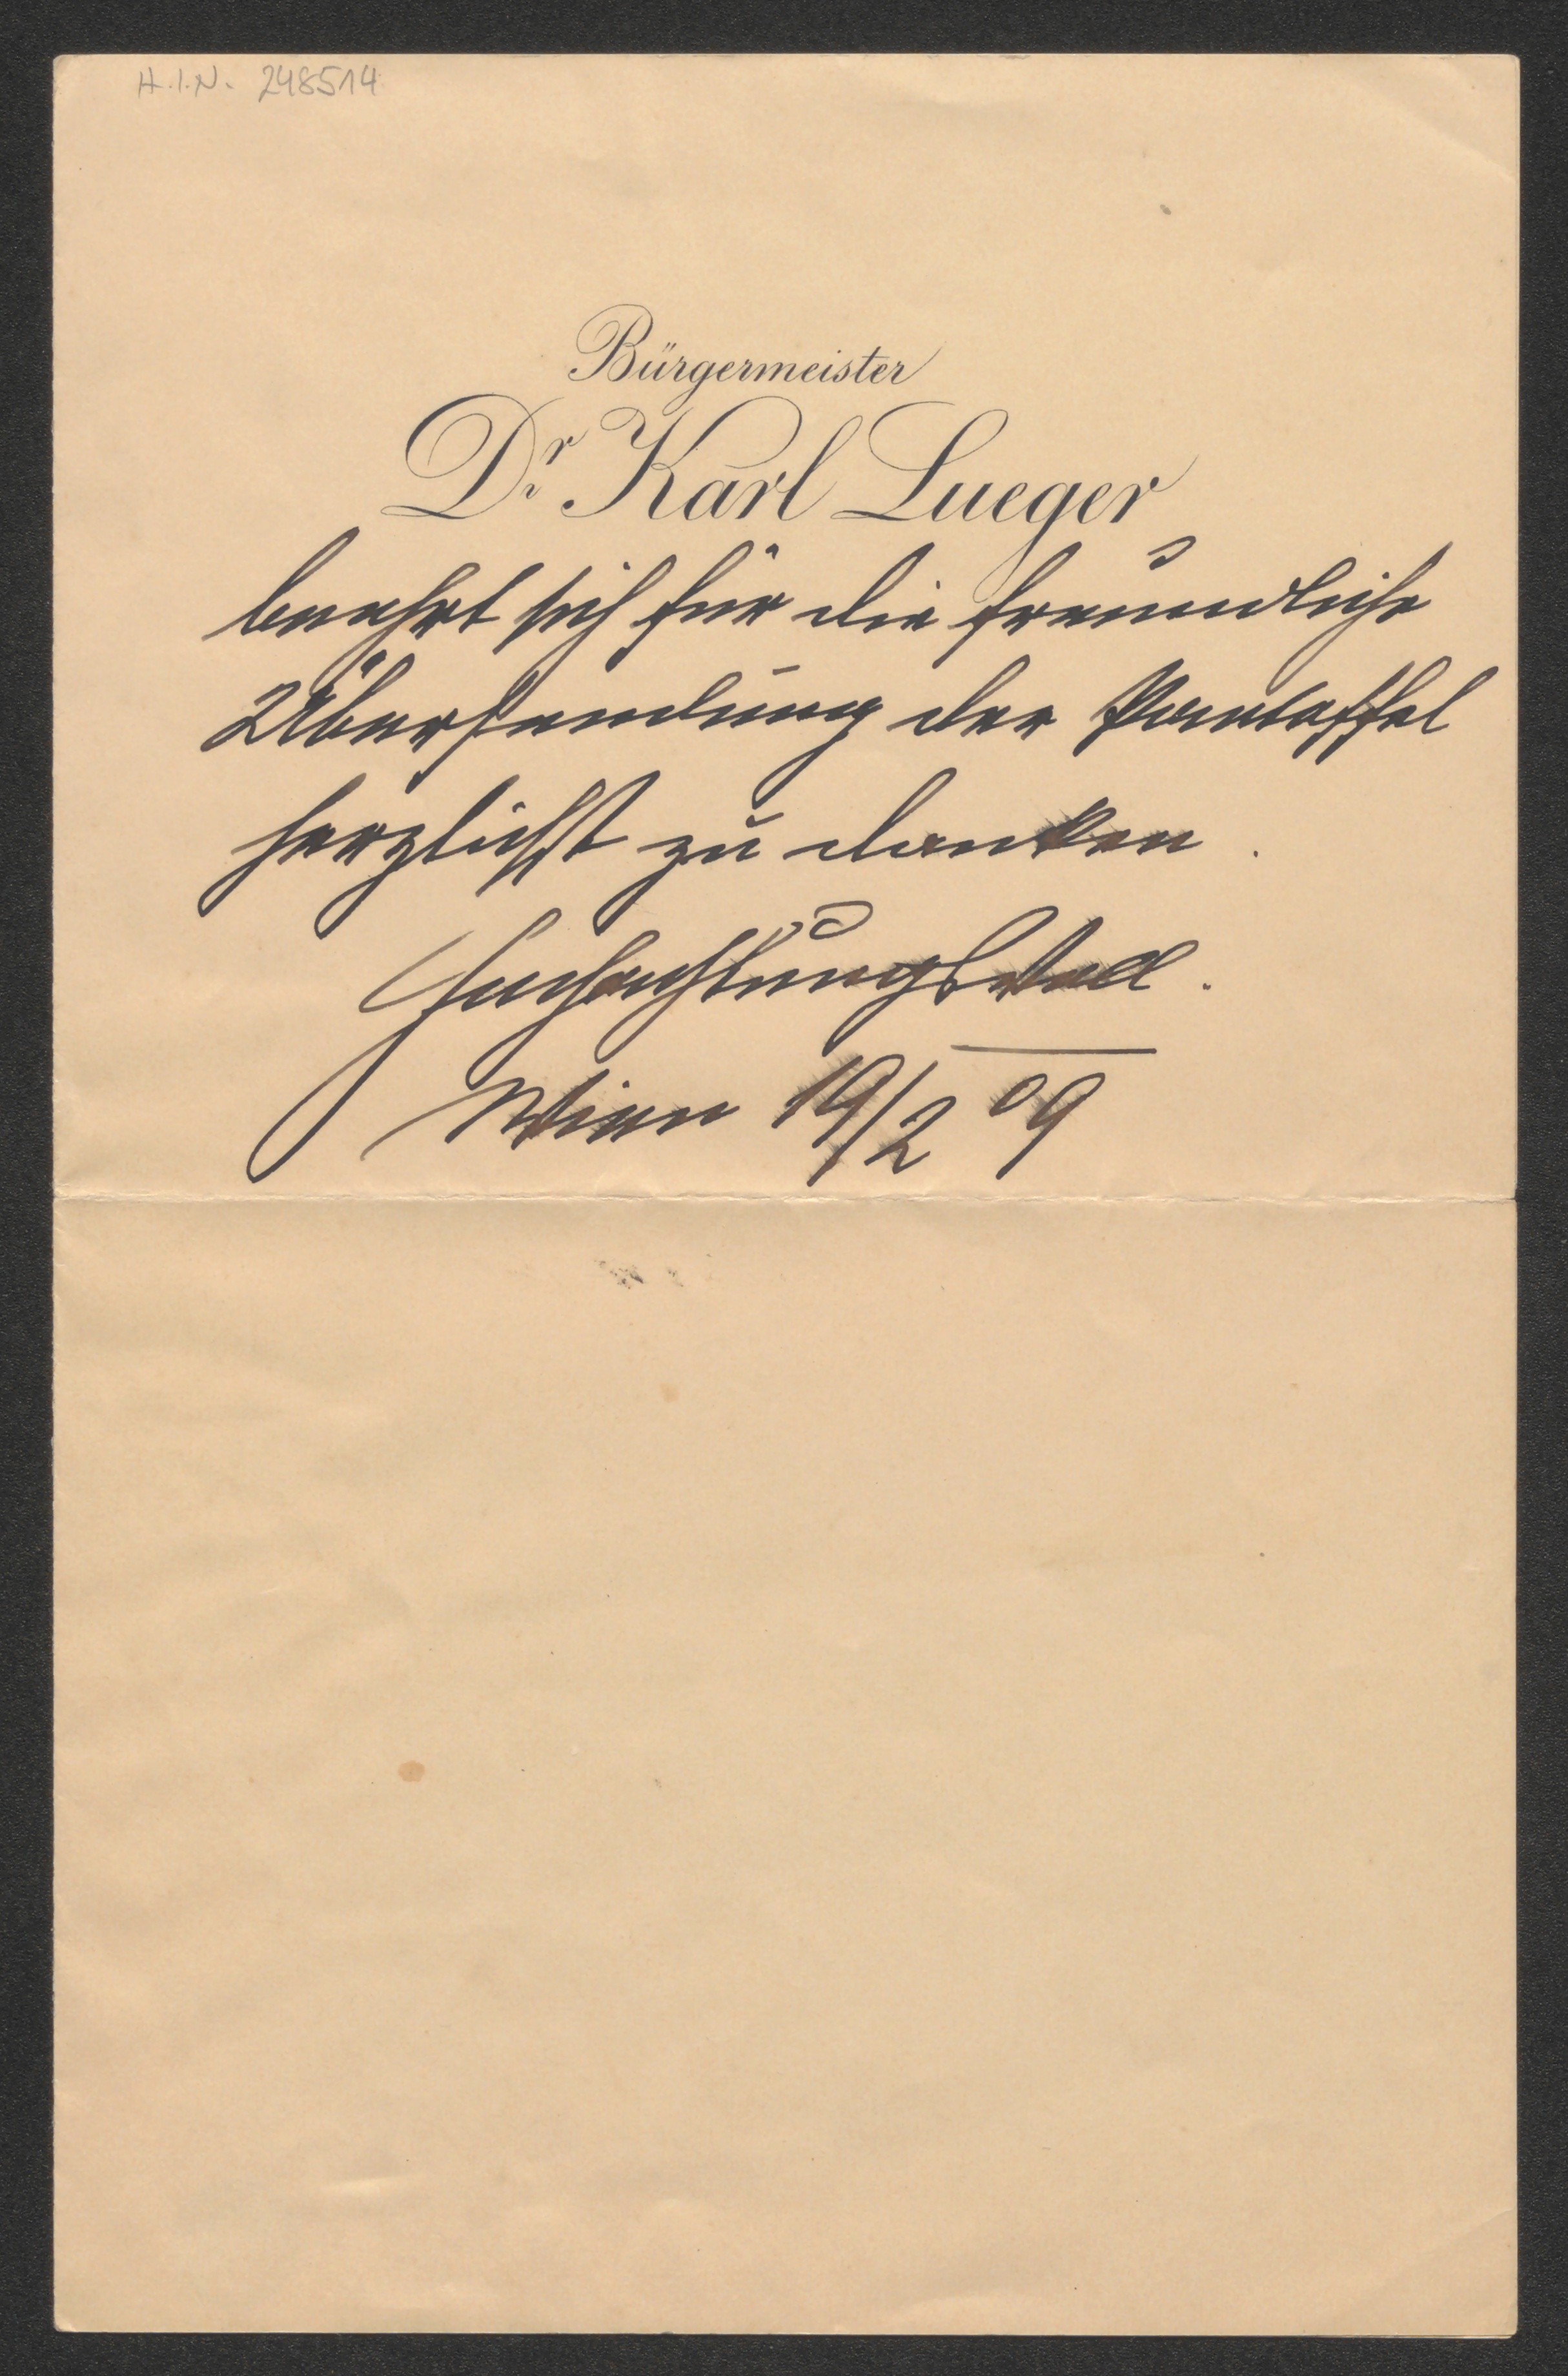 H.I.N. 248514
Bürgermeister
Dr. Karl Lueger
beehrt sich für die freundliche
Übersendung der Pantoffel
herzlichst zu danken.
Hochachtungsvoll.
Wien 19/2 09